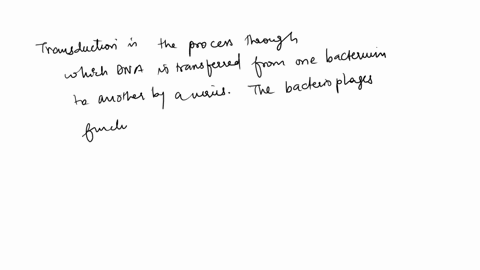 Transduction is the process through
which DNA is transferred from one bacterium
to another by a virus. The bacteriophages